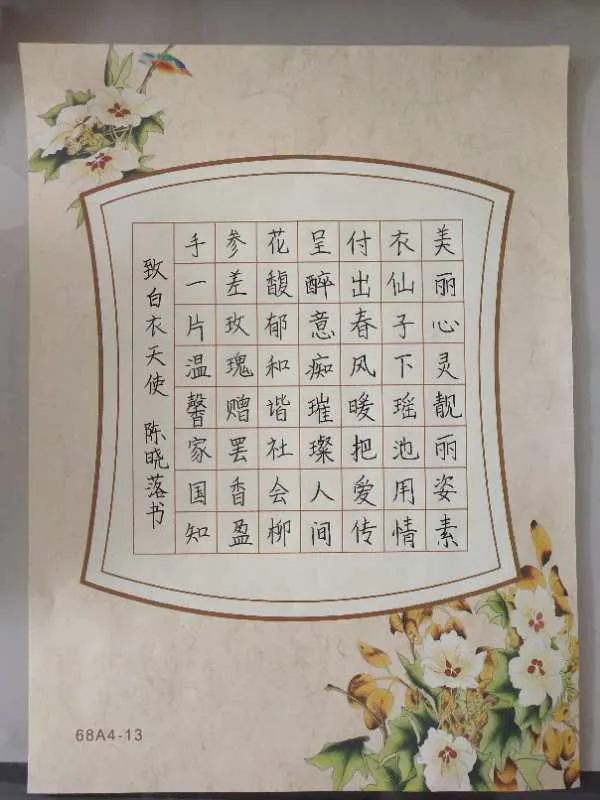 美丽心灵靓丽姿素
衣仙子下瑶池用情
付出春风暖把爱传
呈醉意痴璀璨人间
花馥郁和谐社会柳
参差玫瑰赠罢香盈
手一片温馨家国知
致白衣天使 陈晓落书
68A4-13